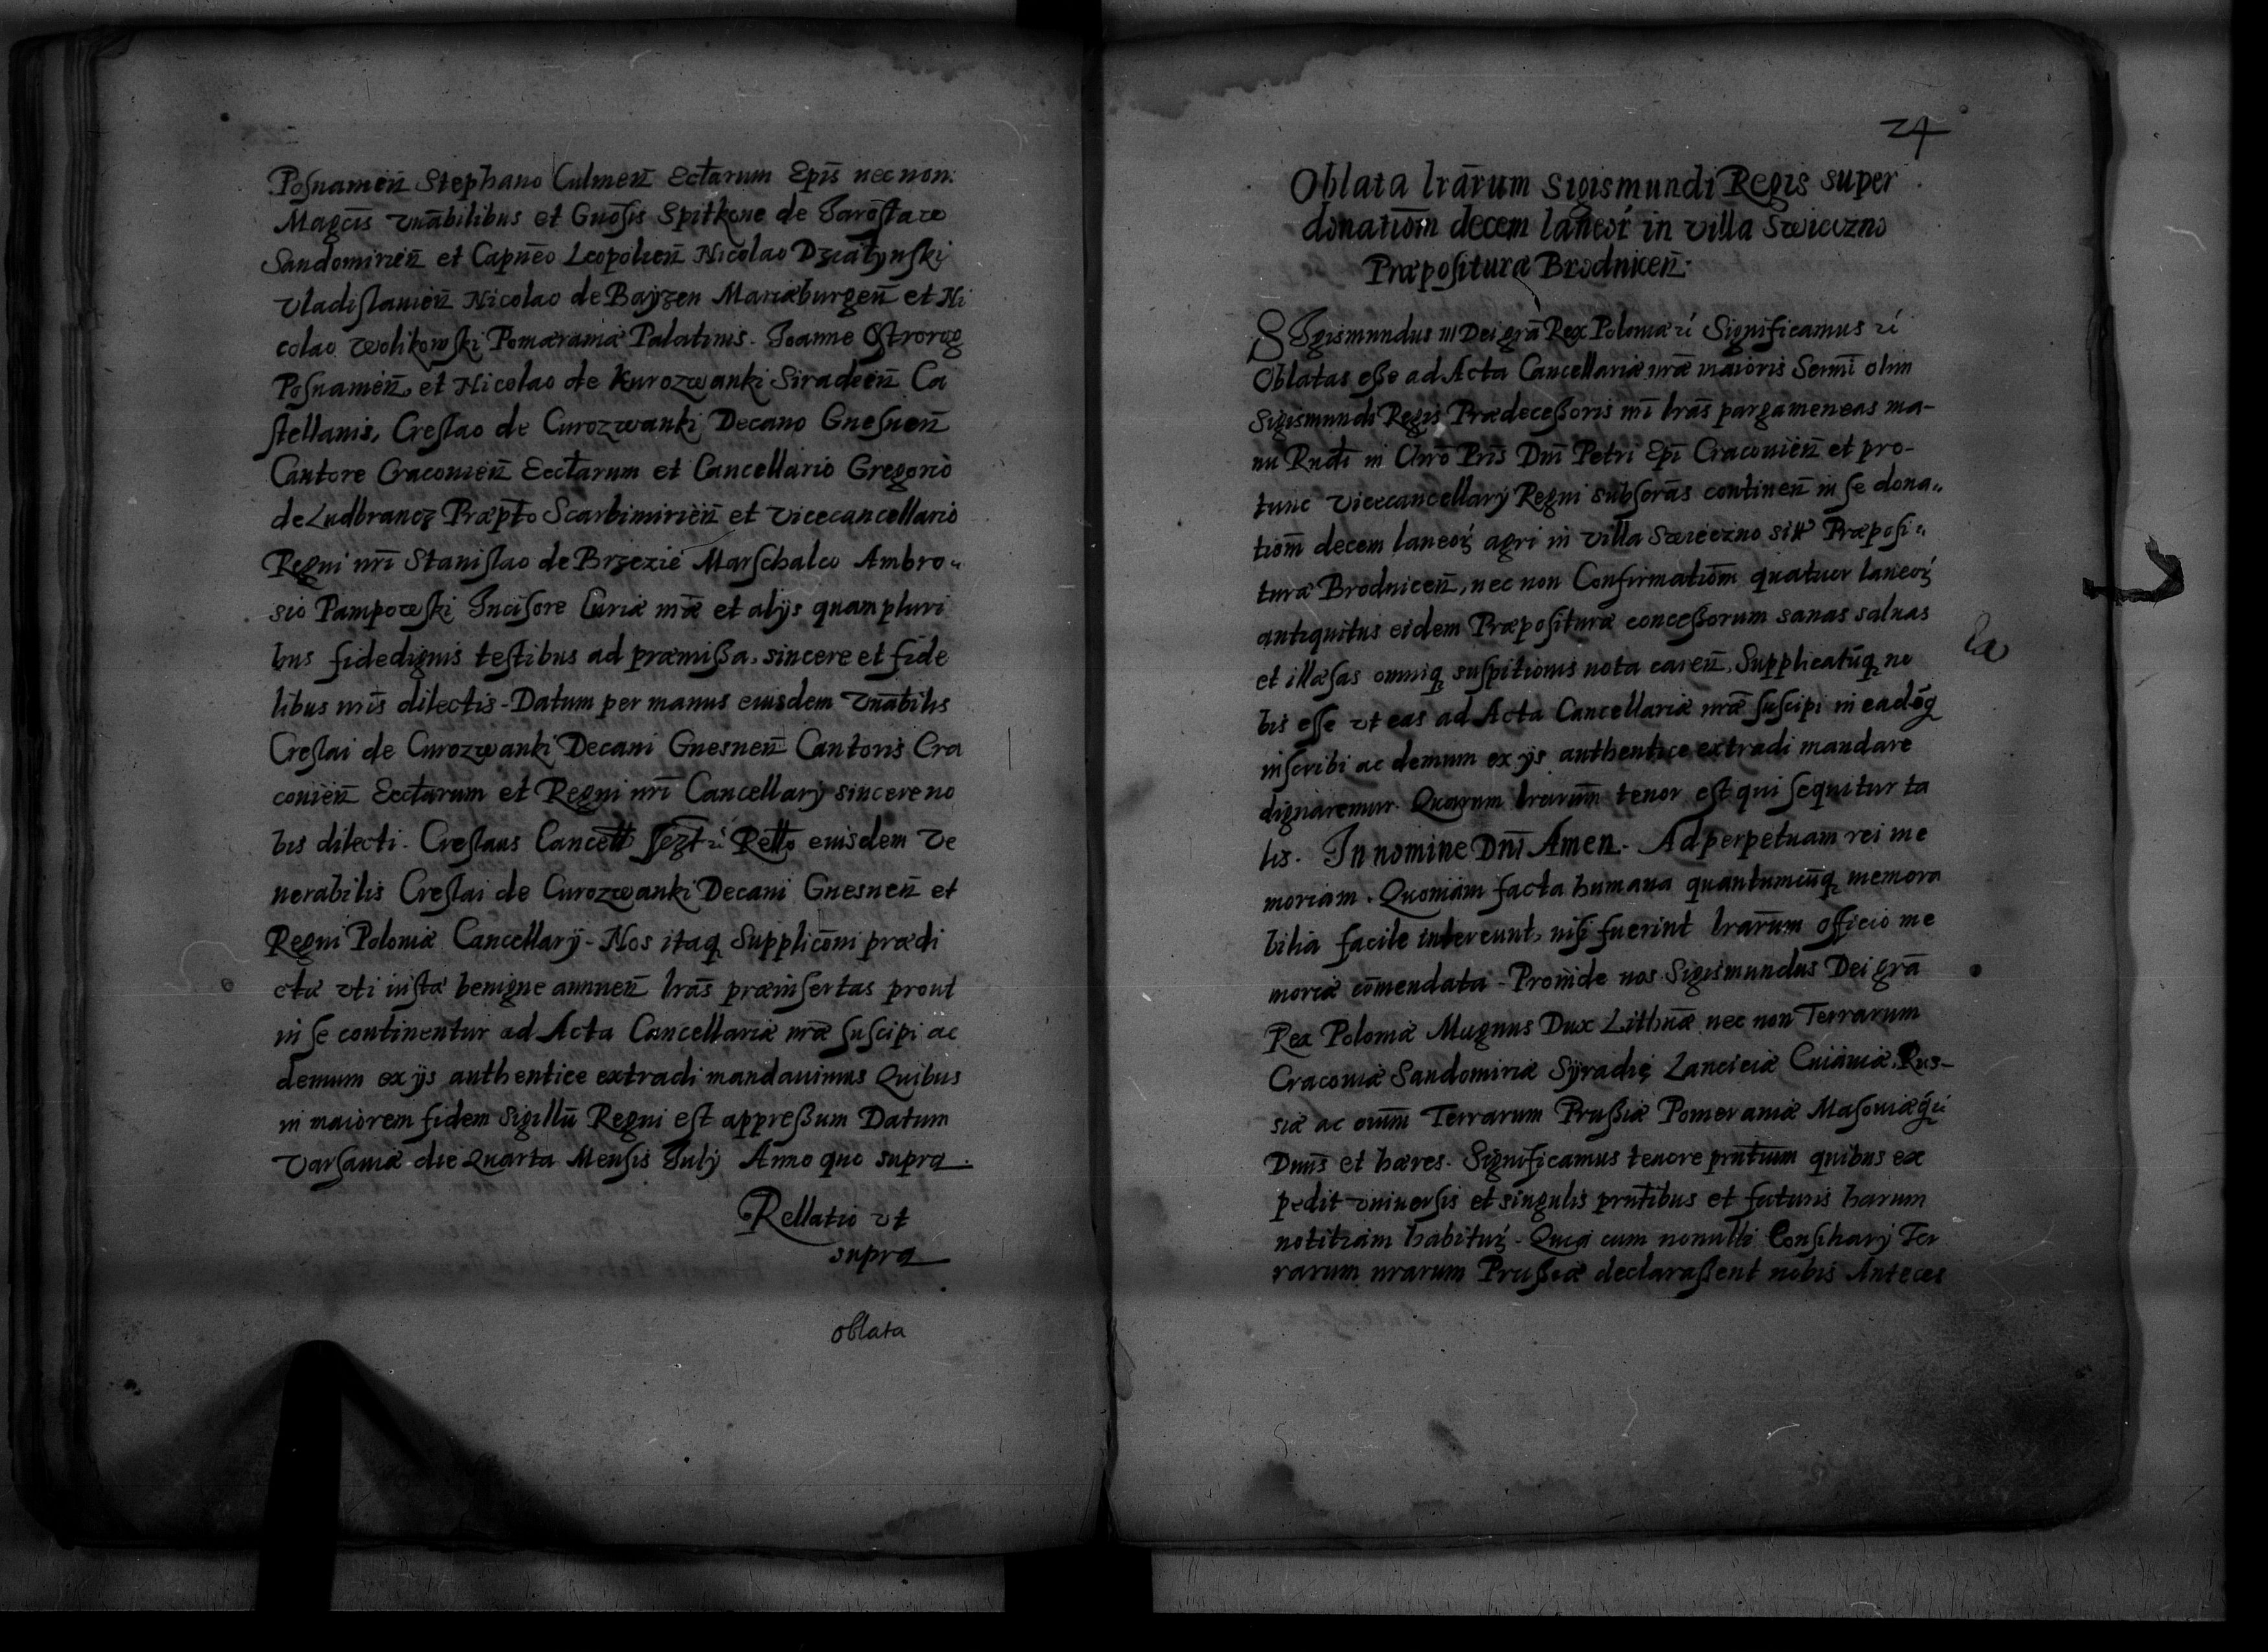 Posnamen̄ Stephano Culmen̄ Ecclarum Epīs nec non
Magcīs vnābilibus et Gnosis Spitkone de Jarostaw
Sandomirien̄ et Capnēo Leopolien̄ Nicolao Dzialÿnski
Vladislauien̄ Nicolao de Baÿzen Mariæburgen̄ et Ni
colao Wolikowski Pomæraniæ Palatinis. Joanne Ostrorog
Posnamen̄ et Nicolao de Kurozwanki Siradien̄ Ca
stellanis, Creslao de Curozwanki Decano Gnesnen̄
Cantore Cracouien̄ Ecctarum et Cancellario Gregorio
de Ludbrancz Præpto Scarbimirien̄ et Vicecancellario
Regni nrī Stanislao de Brzezie Marschalco Ambro„
sio Pampowski Incisore Curiæ nrǣ et alÿs quampluri
bus fidedignis testibus ad præmißa, sincere et fide
libus nrīs dilectis. Datum per manus eiusdem Vnābilis
Creslai de Curozwanki Decani Gnesnen̄ Cantoris Cra
couien̄ Ecctarum et Regni nrī Cancellarÿ sincere no
bis dilecti. Creslaus Cancell̄ sszt Rello eiusdem Ve
nerabilis Creslai de Curozwanki Decani Gnesnen̄ et
Regni Poloniæ Cancellarÿ. Nos itaq Supplicōni prædi
ctæ vti iustæ benigne annuen̄ lrās præinsertas prout
in se continentur ad Acta Cancellariæ nrǣ suscipi ac
demum ex ÿs authentice extradi mandauimus Quibus
in maiorem fidem Sigillū Regni est appreßum Datum
Varsauiæ die Quarta Mensis Julÿ Anno quo supra.
Rellatio vt
supra
oblata
24
Oblata lrārum Sigismundi Regis super
donatiom̄ decem laneoŕ in villa Swieczno
Præposituræ Brodnicen̄.
SIgismundus III Dei grā Rex Poloniæ rć Significamus rć
Oblatas eße ad Acta Cancellariæ nrǣ maioris Sermī olim
Sigismundi Regis Prædeceßoris nrī lrās pargameneas ma-
nu Rndī in Chrō Prīs Dnī Petri Epī Cracouien̄ et pro-
tunc Vicecancellarÿ Regni subscrās continen̄ in se dona„
tiom̄ decem laneoŕ agri in villa Swieczno sitt Præposi„
turæ Brodnicen̄, nec non Confirmatiom̄ quatuor laneoŕ
antiquitus eidem Præposituræ conceßorum sanas saluas
et illæsas omniq suspitionis nota caren̄, Supplicatūq no
bis esse vt eas ad Acta Cancellariæ nrǣ suscipi in eadēq
inscribi ac demum ex ÿs authentice extradi mandare
dignaremur. Quarum lrarum̄ tenor est qui sequitur ta
lis. In nomine Dnī Amen. Ad perpetuam rei me
moriam. Quoniam facta humana quantumcūq memora
bilia facile intereunt, nisi fuerint lrarum̄ officio me
moriæ cōmendata. Proinde nos Sigismundus Dei grā
Rex Poloniæ Magnus Dux Lithnǣ nec non Terrarum
Cracouiæ Sandomiriæ Sÿradię Lanciciæ Cuiauiæ, Rus-
siæ ac omm̄ Terrarum Prußiæ Pomeraniæ Masouiæq rć
Dnus̄ et hæres. Significamus tenore prntium̄ quibus ex
pedit vniuersis et singulis prntibus̄ et futuris harum
notitiam habituŕ. Quia cum nonulli Consiliarÿ Ter
rarum nrarum Prußiæ declaraßent nobis Anteces